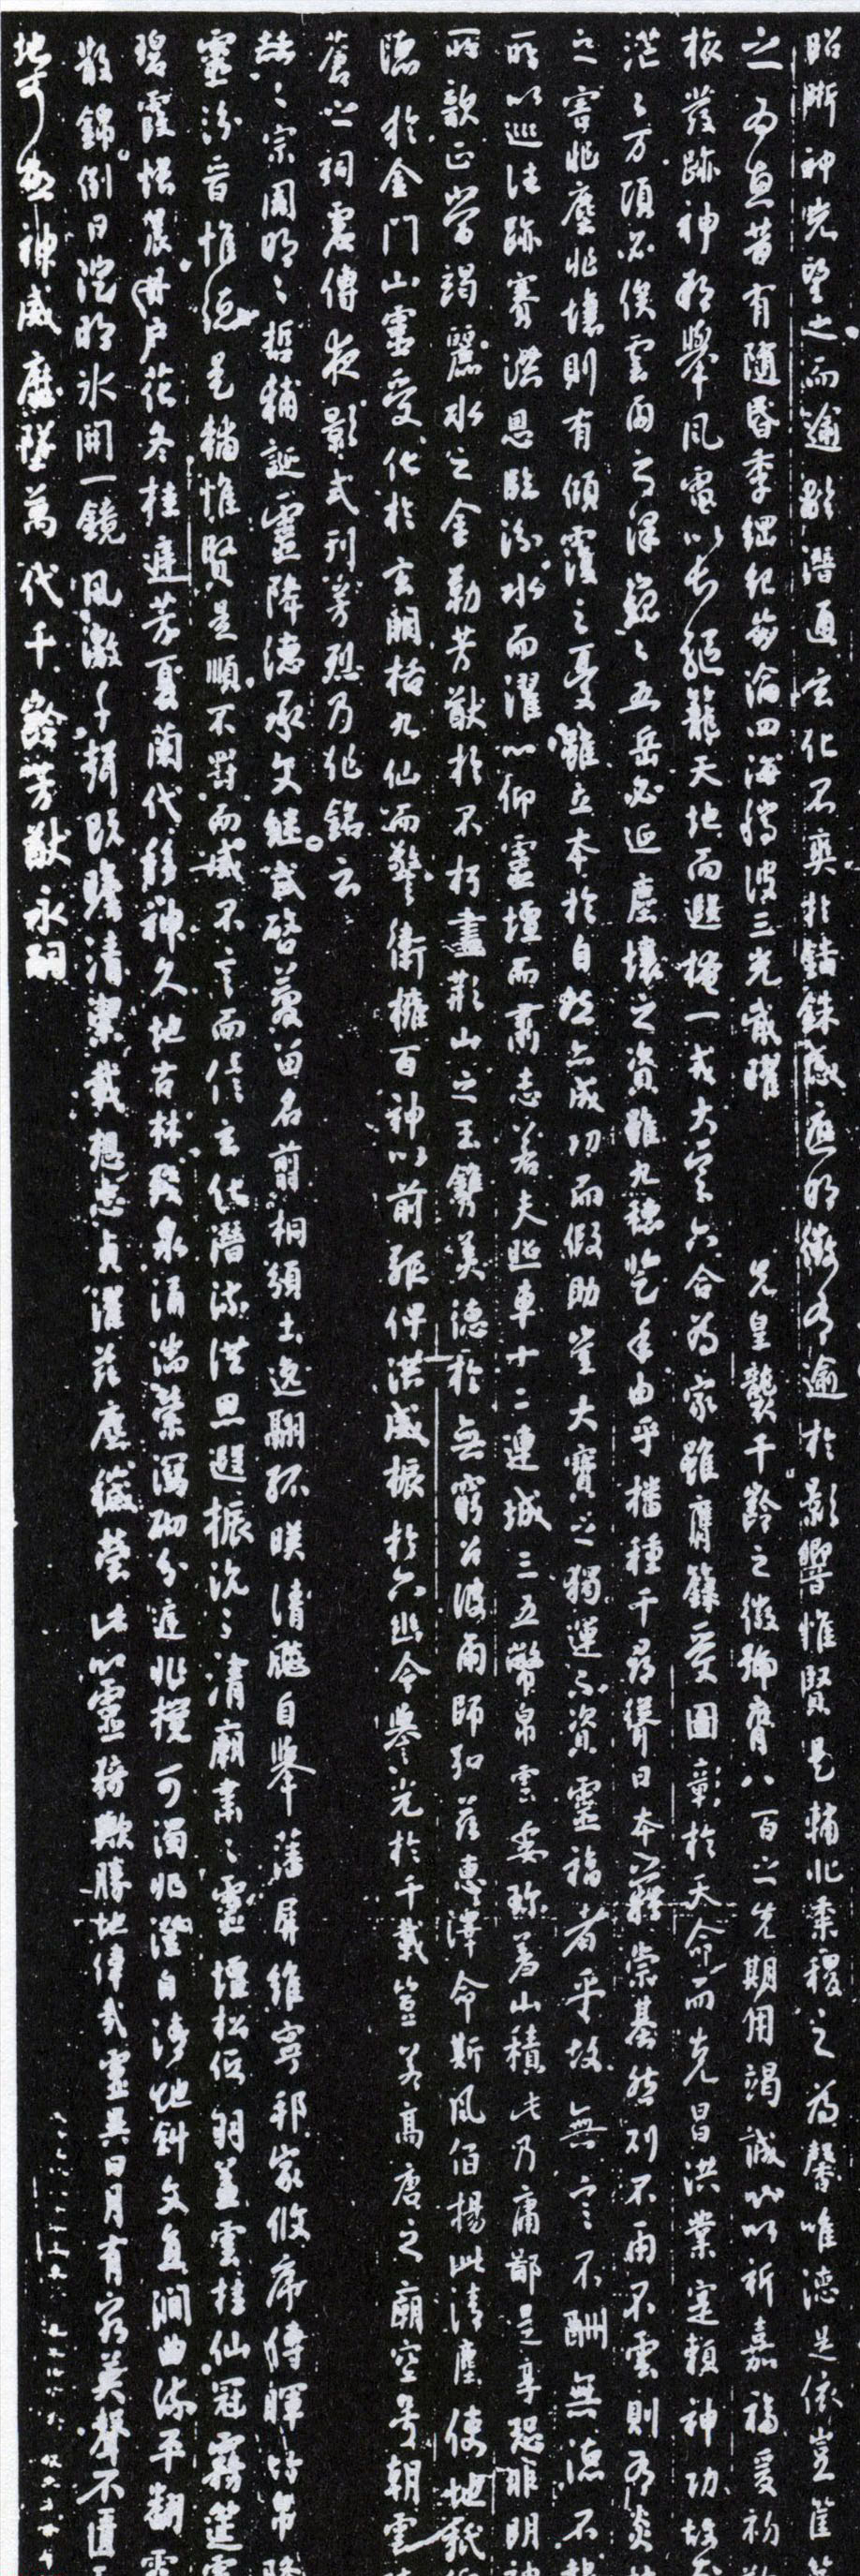 昭晰神光望之而逾顯潛通玄化不爽於錙銖感應明徵有逾於影響惟賢是輔非黍稷之為馨唯德是依豈筐
之為惠昔有隨昏季綱紀崩淪四海騰波三光戢曜先皇襲千齡之徽號膺八百之先期用竭誠心以祈嘉福爰初
旅發跡神祠舉風電以長驅籠天地而遐掩一戎大定六合為家雖膺籙受圖彰於天命而克昌洪業寔賴神功故
茫茫万頃必俟雲雨之澤巍巍五岳必延塵壤之資雖九穗登年由乎播種千尋聳日本藉崇基然則不雨不雲則有炎
之害非塵非壤則有傾覆之憂雖立本於自然亦成功而假助豈大寶之獨運不資靈福者乎故無言不酬無德不
所以巡往跡賽洪恩臨汾水而濯心仰靈壇而肅志若夫照車十二連城三五幣帛雲委珍羞山積此乃庸鄙是享恐非明神
所歆正當竭麗水之金勒芳猷於不朽盡荊山之玉鐫美德於無窮召彼雨師弘茲惠澤命斯風伯揚此清塵使地祇
德於金門山靈受化於玄闕括九仙而警衛擁百神以前驅俾洪威振於六幽令譽光於千載豈若高唐之廟空号朝雲
倉之祠虛傳夜影式刊芳烈乃作銘云
赫赫宗周明明哲輔誕靈降德承文繼武啓慶留名剪桐頒土逸翮孤映清飈自舉藩屏維寧邦家攸序傳暉竹帛降
靈汾晉惟德是輔惟賢是順不罰而威不言而信玄化潛流洪恩遐振沉沉清廟肅肅靈壇松低羽蓋雲挂仙冠霧筵霄
碧霞帳晨丹戶花冬桂庭芳夏蘭代移神久地古林殘泉涌湍縈瀉砌分庭非攪可濁非澄自清地斜文直澗曲流平翻霞
散錦倒日澄明冰開一鏡風激千聲既瞻清潔載想忠貞濯茲塵穢瑩此心靈猗歟勝地偉哉靈異日月有窮英聲不匱
地可極神威靡墜萬代千齡芳猷永嗣